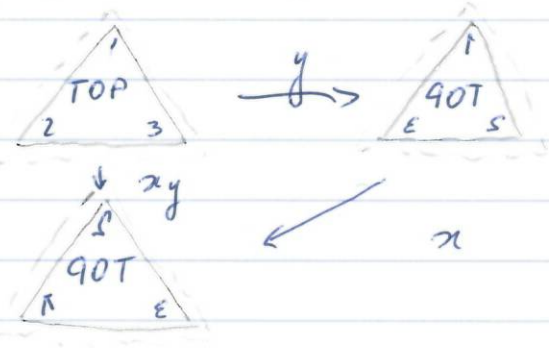 1
TOP
2 3
y
1
ꟼOT
Ɛ S
xy
x
S
ꟼOT
1 Ɛ